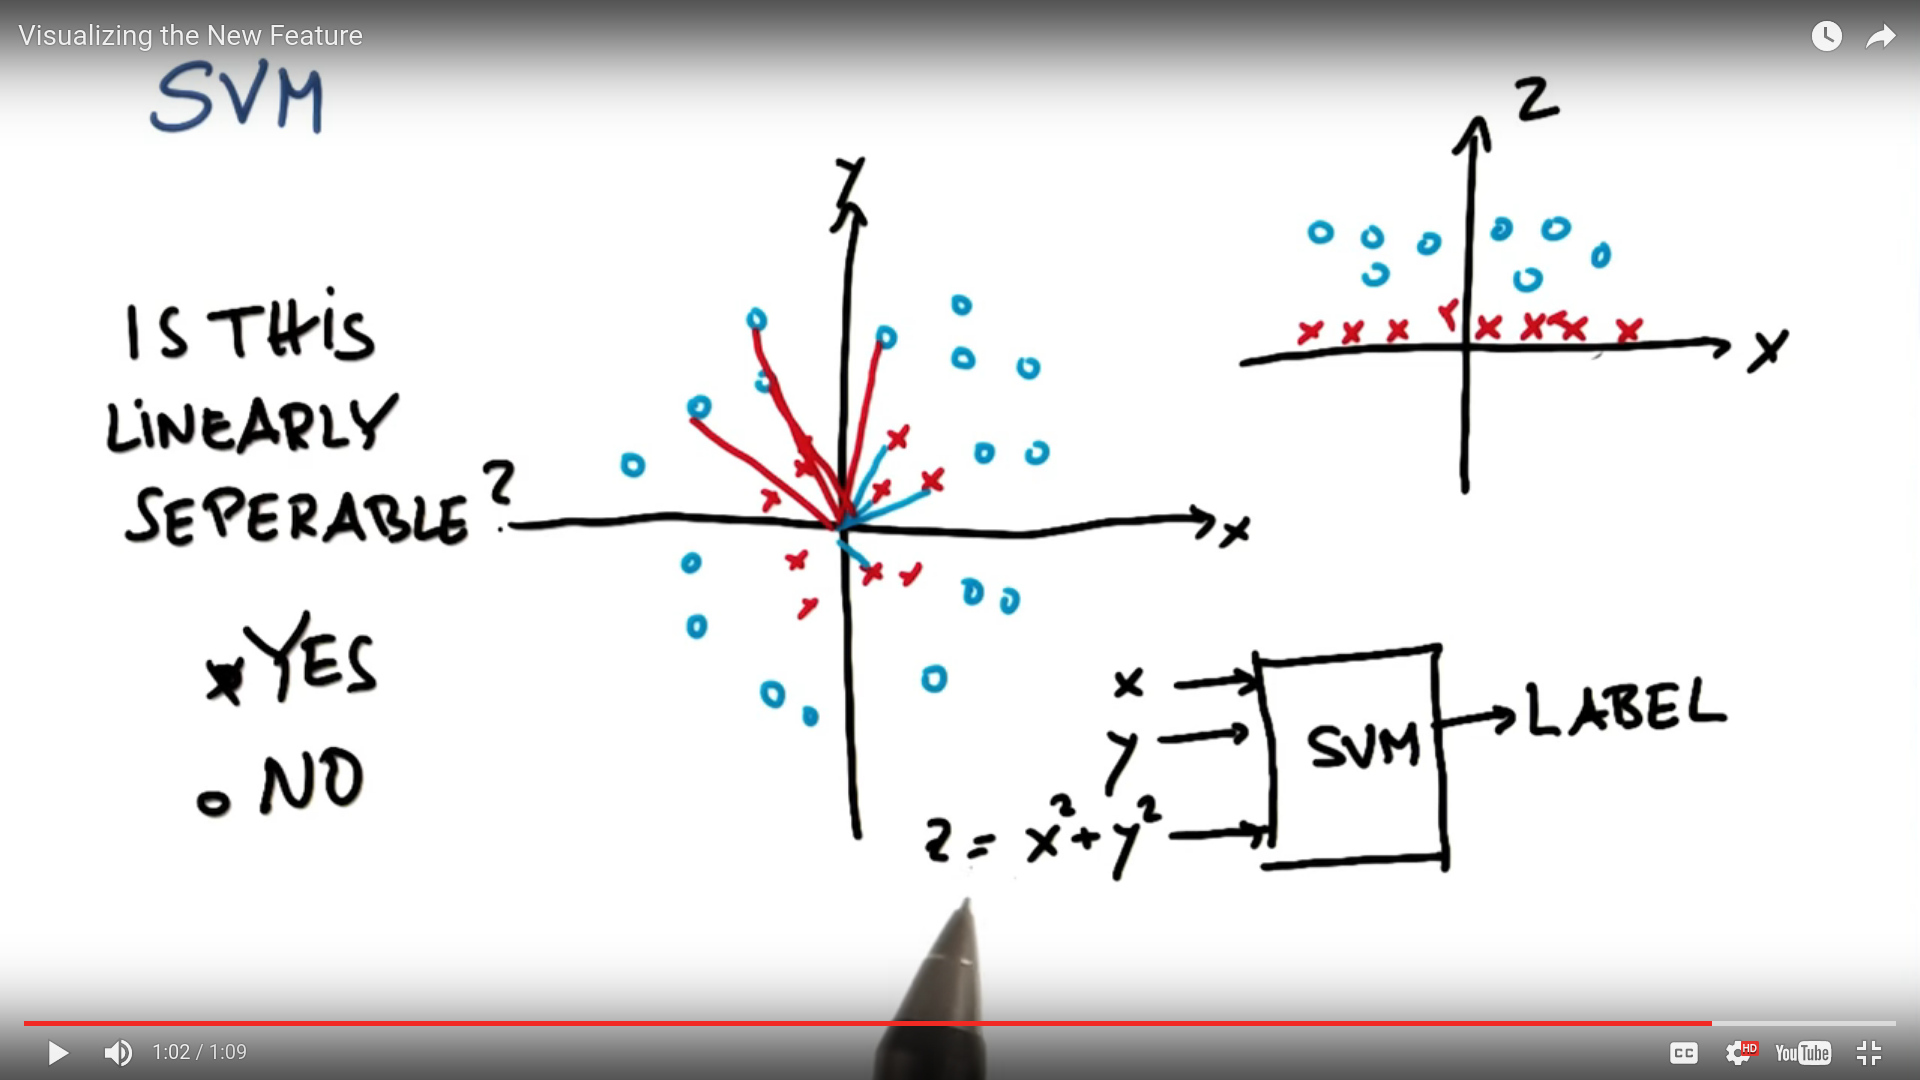 Visualizing the New Feature
SVM
IS THIS
LINEARLY
SEPERABLE?
YES
NO
y
x
z
x
x
y
z = x²+y²
SVM
LABEL
1:02 / 1:09
CC
HD
YouTube